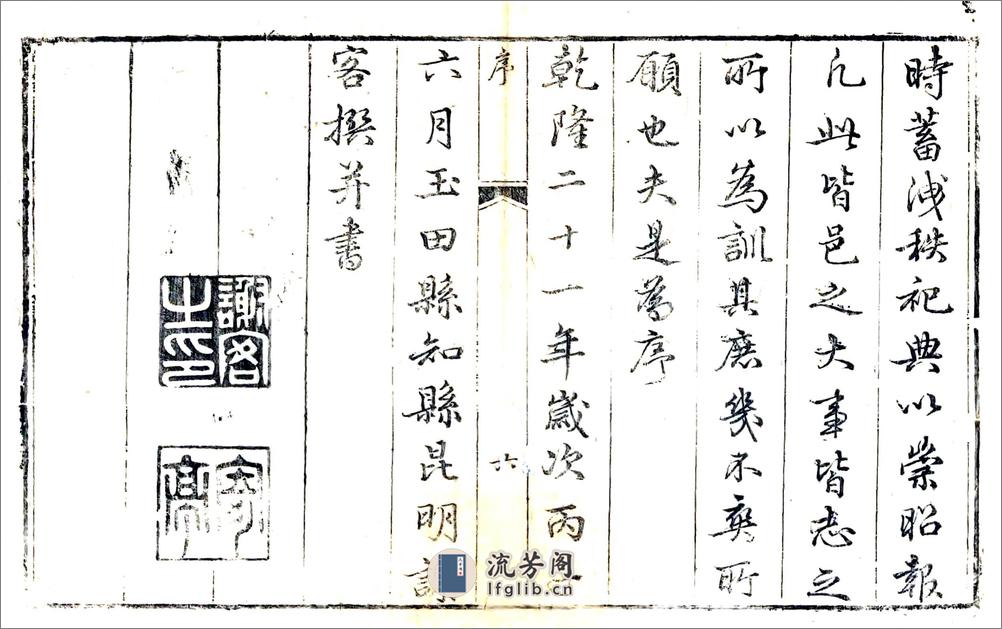 時蓄洩秩祀典以崇昭報
凡此皆邑之大事皆志之
所以為訓其庶幾不爽所
願也夫是為序
乾隆二十一年歲次丙
序
六
六月玉田縣知縣昆明謝
客撰并書
謝客之印
流芳阁
lfglib.cn